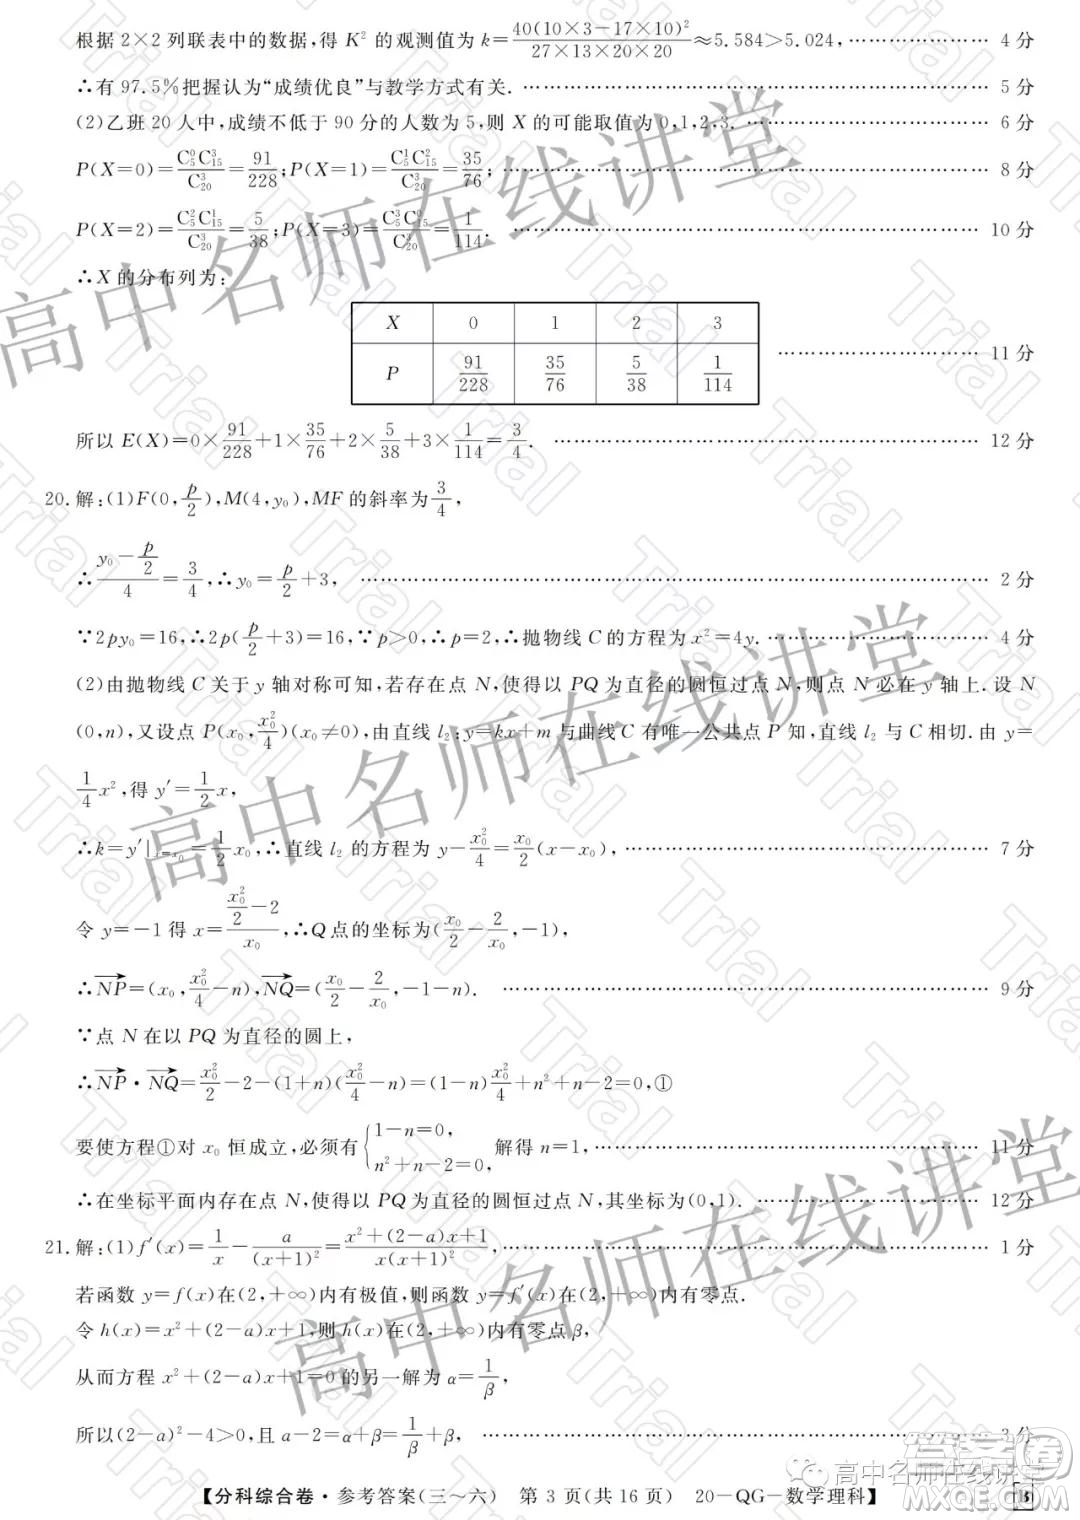 根据 2×2 列联表中的数据,得 K² 的观测值为 k=40(10×3-17×10)²/(27×13×20×20)≈5.584>5.024, ………………… 4 分
∴有 97.5%把握认为“成绩优良”与教学方式有关. ………………… 5 分
(2)乙班 20 人中,成绩不低于 90 分的人数为 5,则 X 的可能取值为 0,1,2,3. ………………… 6 分
P(X=0)=C₅⁰C₁₅³/C₂₀³=91/228;P(X=1)=C₅¹C₁₅²/C₂₀³=35/76; ………………… 8 分
P(X=2)=C₅²C₁₅¹/C₂₀³=5/38;P(X=3)=C₅³C₁₅⁰/C₂₀³=1/114. ………………… 10 分
∴X 的分布列为:
X 0 1 2 3
P 91/228 35/76 5/38 1/114 ………………… 11 分
所以 E(X)=0×91/228+1×35/76+2×5/38+3×1/114=3/4. ………………… 12 分
20.解:(1)F(0,p/2),M(4,y₀),MF 的斜率为3/4,
∴(y₀-p/2)/4=3/4,∴y₀=p/2+3, ………………… 2 分
∵2py₀=16,∴2p(p/2+3)=16,∵p>0,∴p=2,∴抛物线 C 的方程为 x²=4y. ………………… 4 分
(2)由抛物线 C 关于 y 轴对称可知,若存在点 N,使得以 PQ 为直径的圆恒过点 N,则点 N 必在 y 轴上.设 N
(0,n),又设点 P(x₀,x₀²/4)(x₀≠0),由直线 l₂:y=kx+m 与曲线 C 有唯一公共点 P 知,直线 l₂ 与 C 相切.由 y=
1/4x²,得 y′=1/2x,
∴k=y′|ₓ₌ₓ₀=1/2x₀,∴直线 l₂ 的方程为 y-x₀²/4=x₀/2(x-x₀), ………………… 7 分
令 y=-1 得 x=(x₀²/2-2)/x₀,∴Q 点的坐标为(x₀/2-2/x₀,-1),
∴NP→=(x₀,x₀²/4-n),NQ→=(x₀/2-2/x₀,-1-n). ………………… 9 分
∵点 N 在以 PQ 为直径的圆上,
∴NP→·NQ→=x₀²/2-2-(1+n)(x₀²/4-n)=(1-n)x₀²/4+n²+n-2=0,①
要使方程①对 x₀ 恒成立,必须有{1-n=0, n²+n-2=0, 解得 n=1, ………………… 11 分
∴在坐标平面内存在点 N,使得以 PQ 为直径的圆恒过点 N,其坐标为(0,1). ………………… 12 分
21.解:(1)f′(x)=1/x-a/(x+1)²=(x²+(2-a)x+1)/(x(x+1)²), ………………… 1 分
若函数 y=f(x)在(2,+∞)内有极值,则函数 y=f′(x)在(2,+∞)内有零点.
令 h(x)=x²+(2-a)x+1,则 h(x)在(2,+∞)内有零点 β,
从而方程 x²+(2-a)x+1=0 的另一解为 α=1/β,
所以(2-a)²-4>0,且 a-2=α+β=1/β+β, ………………… 3 分
【分科综合卷·参考答案(三~六) 第 3 页(共 16 页) 20-QG-数学理科】 B
高中名师在线讲堂
高中名师在线讲堂
高中名师在线讲堂
高中名师在线讲堂
Trial
答案圈
MXQE.COM